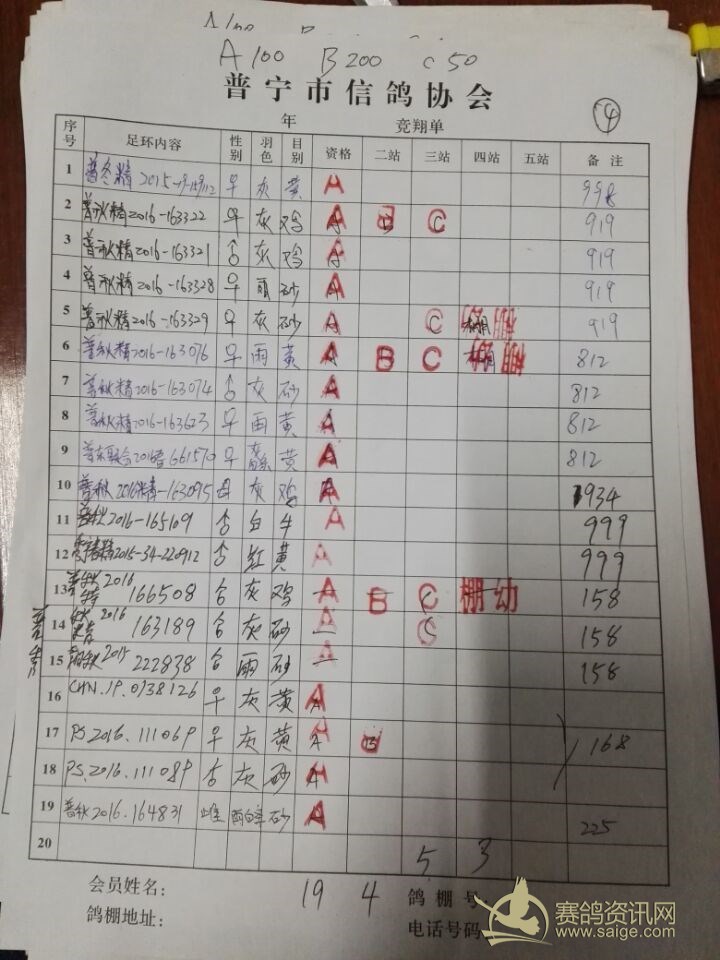 A100 B200 C50
普宁市信鸽协会
④
年 竞翔单
序号 足环内容 性别 羽色 目别 资格 二站 三站 四站 五站 备注
1 普冬精 2015 ♀ 灰 黄 A 998
2 普秋精2016-163322 ♀ 灰 鸡 A B C 919
3 普秋精2016-163321 ♂ 灰 鸡 A 919
4 普秋精2016-163328 ♀ 雨 砂 A 919
5 普秋精2016-163329 ♀ 灰 砂 A C 棚 919
6 普秋精2016-163076 ♀ 雨 黄 A B C 棚 812
7 普秋精2016-163074 ♂ 灰 砂 A 812
8 普秋精2016-163623 ♀ 雨 黄 A 812
9 普东联合2016 661570 ♀ 黄 A 812
10 普秋2016精-163095 灰 鸡 A 934
11 普秋2016-165109 白 牛 A 999
12 2015-34-220912 红 黄 A 999
13 普秋2016特 166508 灰 鸡 A B C 棚幼 158
14 2016 163189 灰 砂 A C 158
15 2015 222838 雨 砂 A 158
16 CHN.19.0738126 ♀ 灰 黄 A
17 PS.2016.111069 ♀ 灰 黄 A B 168
18 PS.2016.111089 灰 砂 A
19 普秋2016.164831 雌 雨白 砂 A 225
20 5 3
会员姓名： 19 4 鸽棚号
鸽棚地址： 电话号码
赛鸽资讯网
www.saige.com